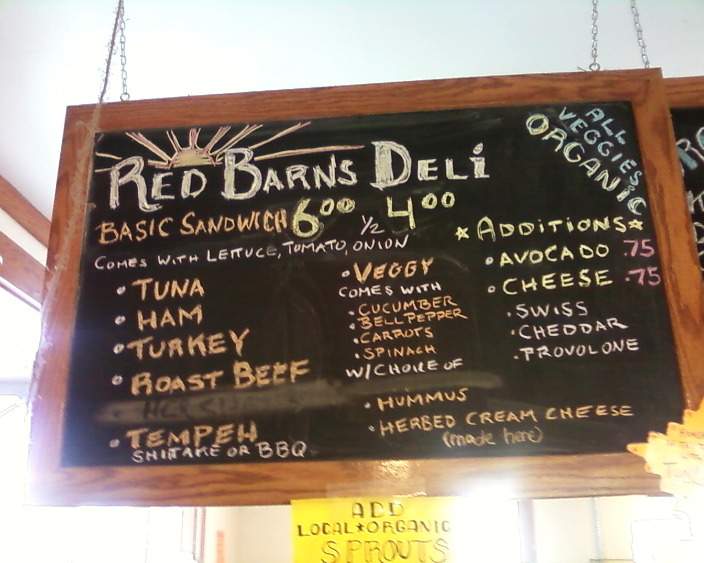 RED BARNS DELI
ALL
VEGGIES
ORGANIC
BASIC SANDWICH 6.00 1/2 4.00
COMES WITH LETTUCE, TOMATO, ONION
• TUNA
• HAM
• TURKEY
• ROAST BEEF
• TEMPEH
SHIITAKE OR BBQ
• VEGGY
COMES WITH
• CUCUMBER
• BELL PEPPER
• CARROTS
• SPINACH
W/CHOICE OF
• HUMMUS
• HERBED CREAM CHEESE
(made here)
* ADDITIONS *
• AVOCADO .75
• CHEESE .75
• SWISS
• CHEDDAR
• PROVOLONE
ADD
LOCAL * ORGANIC
SPROUTS